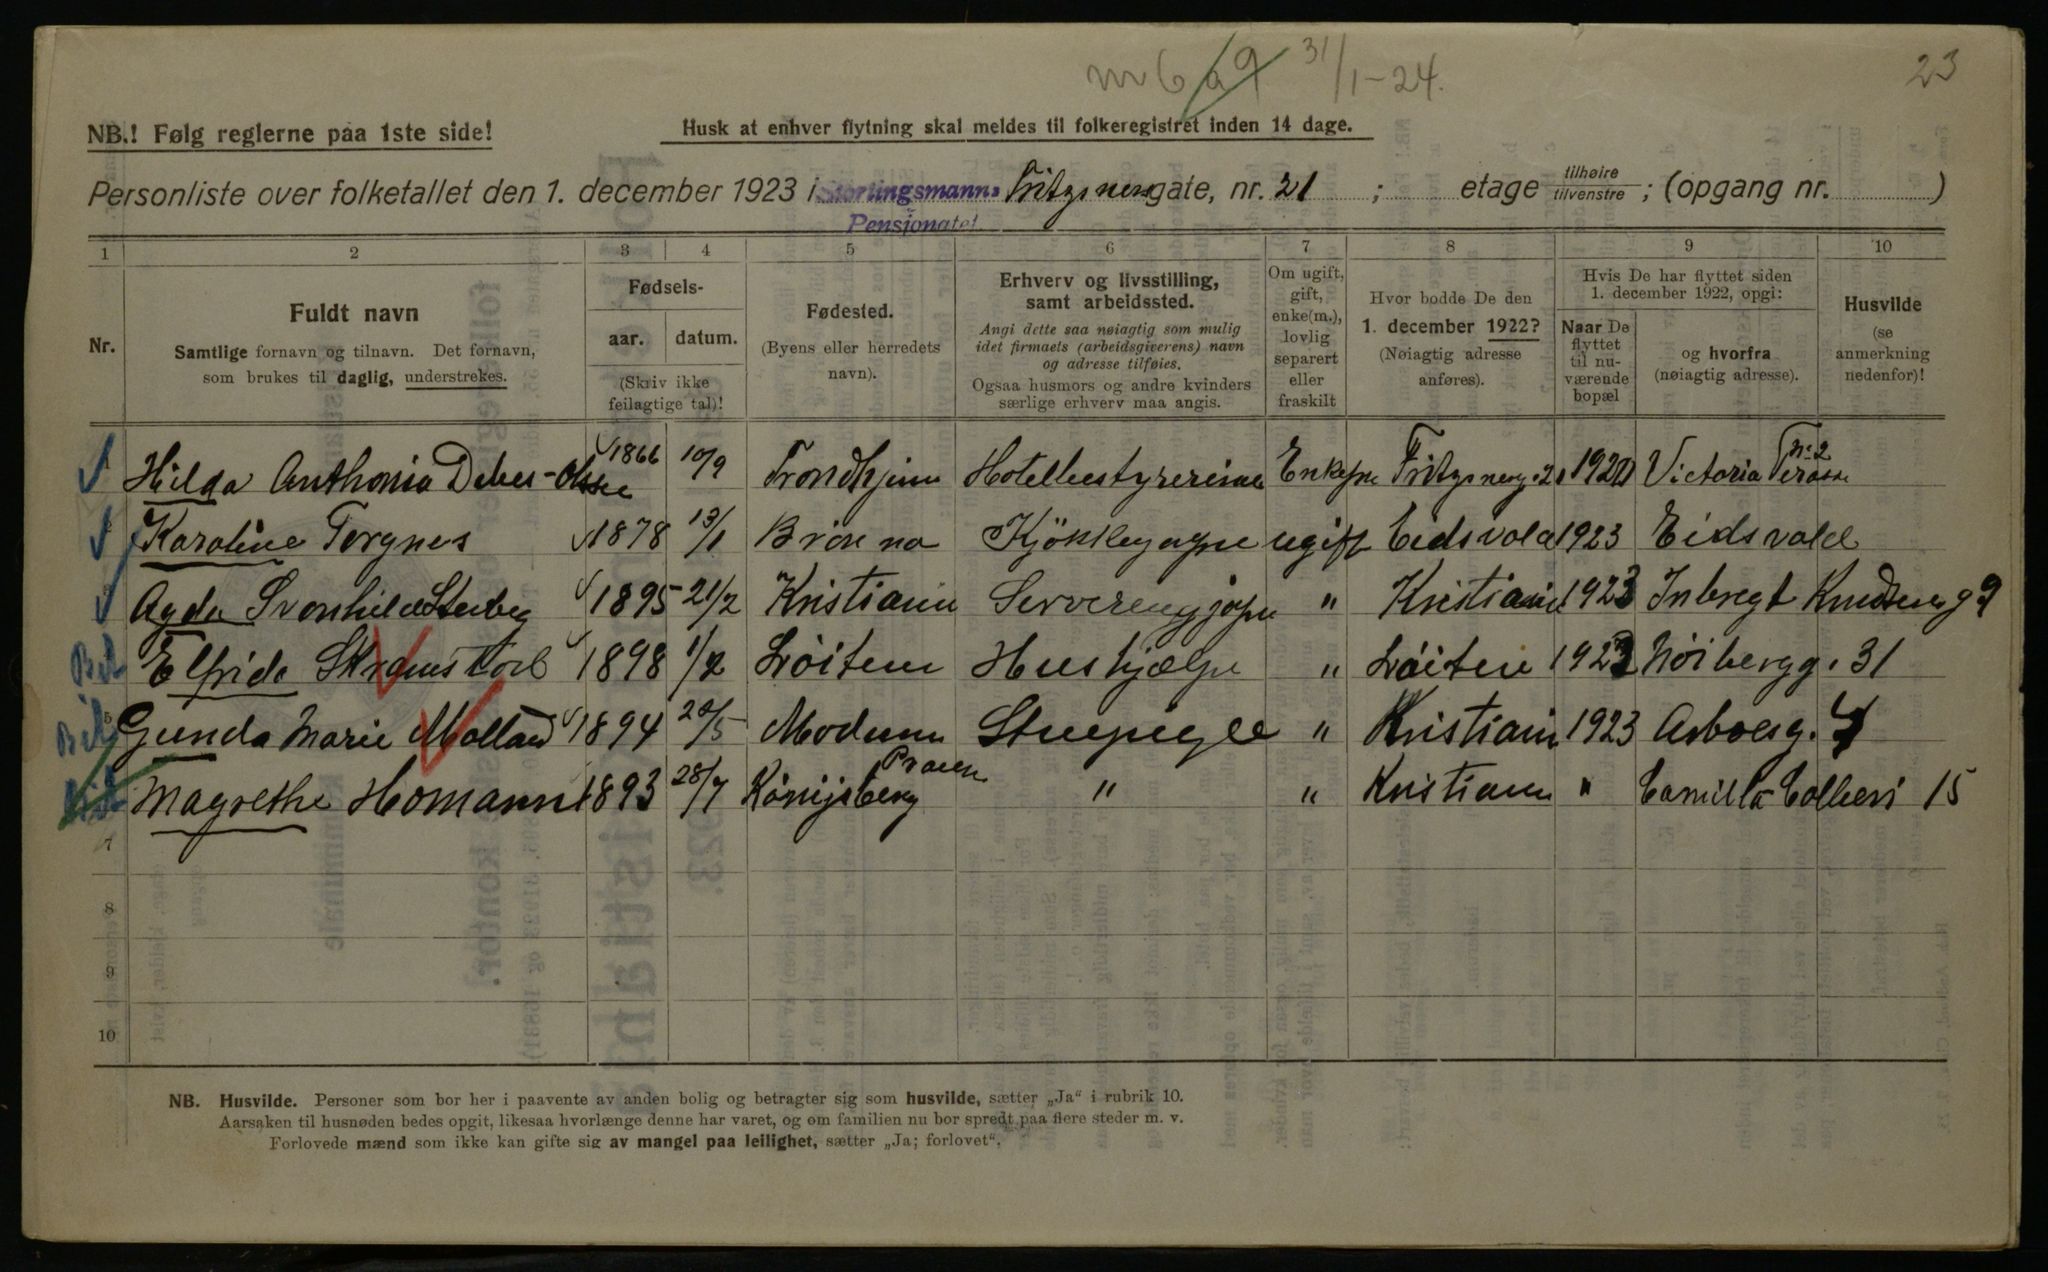 nr 6 a 9 31/1-24.
23
NB.! Følg reglerne paa 1ste side!
Husk at enhver flytning skal meldes til folkeregistret inden 14 dage.
Personliste over folketallet den 1. december 1923 i Stortingsmanns Fritznersgate, nr. 21 ; etage tilhøire tilvenstre ; (opgang nr. )
Pensjonatet
1 2 3 4 5 6 7 8 9 10
Nr.
Fuldt navn
Samtlige fornavn og tilnavn. Det fornavn,
som brukes til daglig, understrekes.
Fødsels-
aar. datum.
(Skriv ikke
feilagtige tal)!
Fødested.
(Byens eller herredets
navn).
Erhverv og livsstilling,
samt arbeidssted.
Angi dette saa nøiagtig som mulig
idet firmaets (arbeidsgiverens) navn
og adresse tilføies.
Ogsaa husmors og andre kvinders
særlige erhverv maa angis.
Om ugift,
gift,
enke(m.),
lovlig
separert
eller
fraskilt
Hvor bodde De den
1. december 1922?
(Nøiagtig adresse
anføres).
Hvis De har flyttet siden
1. december 1922, opgi:
Naar De
flyttet
til nu-
værende
bopæl
og hvorfra
(nøiagtig adresse).
Husvilde
(se
anmerkning
nedenfor)!
Hilda Anthonia Debes-Olsen 1866 10/9 Trondhjem Hotelbestyrerinne Enkefrue Fritznersg. 21 1920 Victoria Terasse nr. 2
Karoline Torgnes 1878 13/1 ugift Eidsvold 1923 Eidsvold
Agda Svanhild 1895 21/2 Kristiania " Kristiania 1923 9
Elfrida 1898 Löiten Hushjælp " Löiten 1923 31
5 Gunda Marie Molland 1894 Modum Stuepige " Kristiania 1923 Arboesg.
Magrethe Homann 1893 28/7 Königsberg " " Kristiania " Camilla Colletts 15
7
8
9
10
NB. Husvilde. Personer som bor her i paavente av anden bolig og betragter sig som husvilde, sætter „Ja“ i rubrik 10.
Aarsaken til husnøden bedes opgit, likesaa hvorlænge denne har varet, og om familien nu bor spredt paa flere steder m. v.
Forlovede mænd som ikke kan gifte sig av mangel paa leilighet, sætter „Ja; forlovet“.